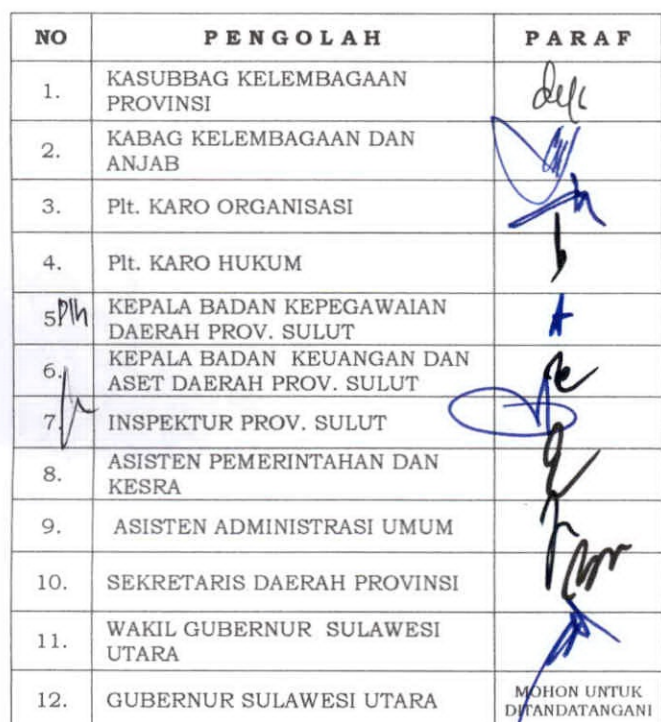 NO PENGOLAH PARAF
1. KASUBBAG KELEMBAGAAN
PROVINSI
2. KABAG KELEMBAGAAN DAN
ANJAB
3. Plt. KARO ORGANISASI
4. Plt. KARO HUKUM
5 Plh KEPALA BADAN KEPEGAWAIAN
DAERAH PROV. SULUT
6. KEPALA BADAN KEUANGAN DAN
ASET DAERAH PROV. SULUT
7. INSPEKTUR PROV. SULUT
8. ASISTEN PEMERINTAHAN DAN
KESRA
9. ASISTEN ADMINISTRASI UMUM
10. SEKRETARIS DAERAH PROVINSI
11. WAKIL GUBERNUR SULAWESI
UTARA
12. GUBERNUR SULAWESI UTARA MOHON UNTUK
DITANDATANGANI